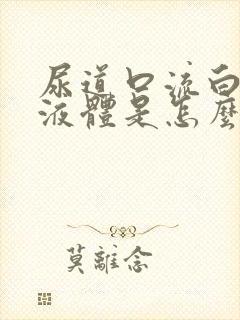 尿道口流白
液體是怎麼
莫離念